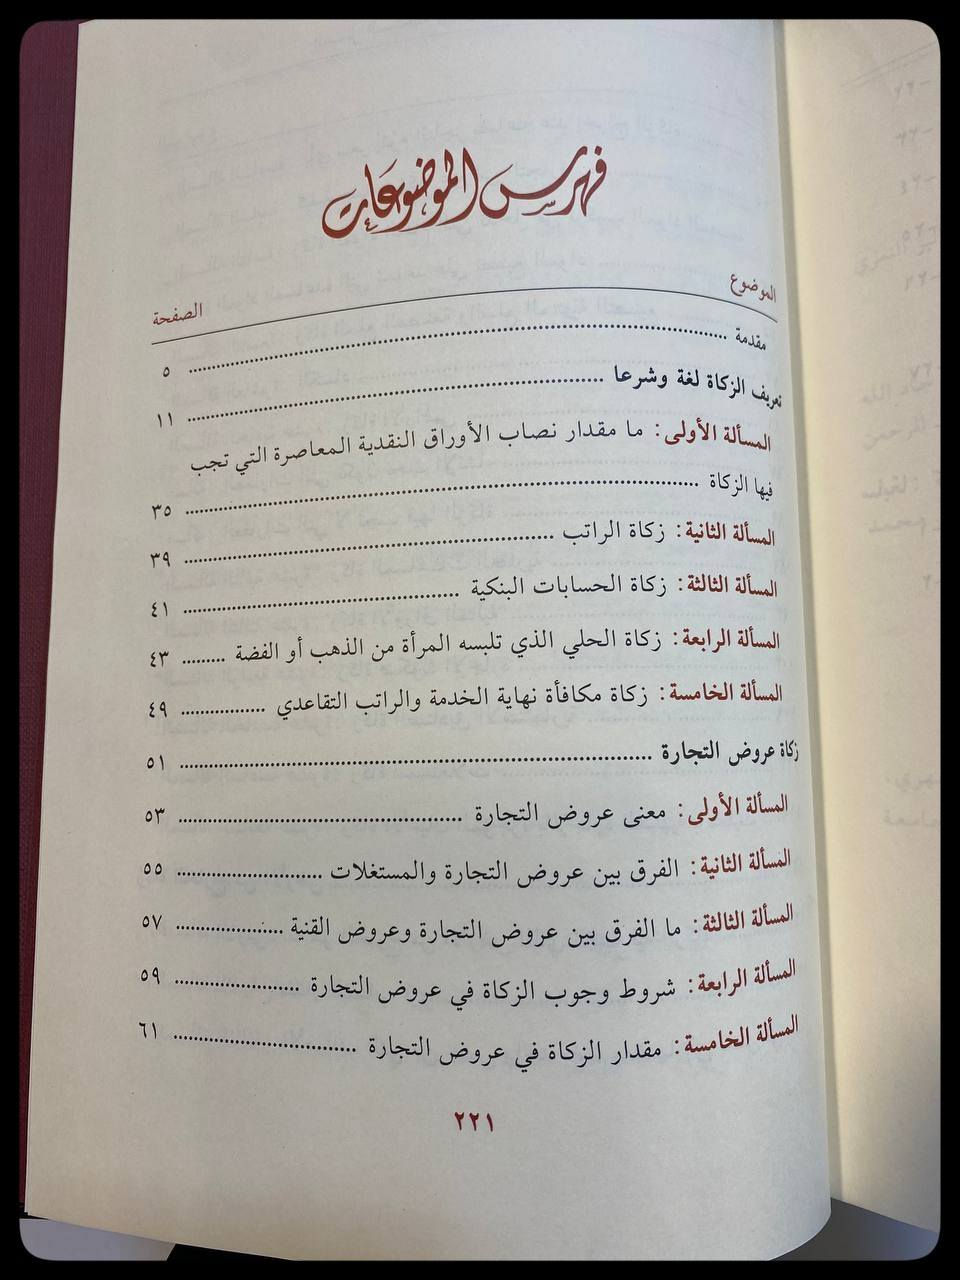 فهرس الموضوعات
الموضوع الصفحة
مقدمة ........ ٥
تعريف الزكاة لغة وشرعا ........ ١١
المسألة الأولى: ما مقدار نصاب الأوراق النقدية المعاصرة التي تجب
فيها الزكاة ........ ٣٥
المسألة الثانية: زكاة الراتب ........ ٣٩
المسألة الثالثة: زكاة الحسابات البنكية ........ ٤١
المسألة الرابعة: زكاة الحلي الذي تلبسه المرأة من الذهب أو الفضة ........ ٤٣
المسألة الخامسة: زكاة مكافأة نهاية الخدمة والراتب التقاعدي ........ ٤٩
زكاة عروض التجارة ........ ٥١
المسألة الأولى: معنى عروض التجارة ........ ٥٣
المسألة الثانية: الفرق بين عروض التجارة والمستغلات ........ ٥٥
المسألة الثالثة: ما الفرق بين عروض التجارة وعروض القنية ........ ٥٧
المسألة الرابعة: شروط وجوب الزكاة في عروض التجارة ........ ٥٩
المسألة الخامسة: مقدار الزكاة في عروض التجارة ........ ٦١
٢٢١